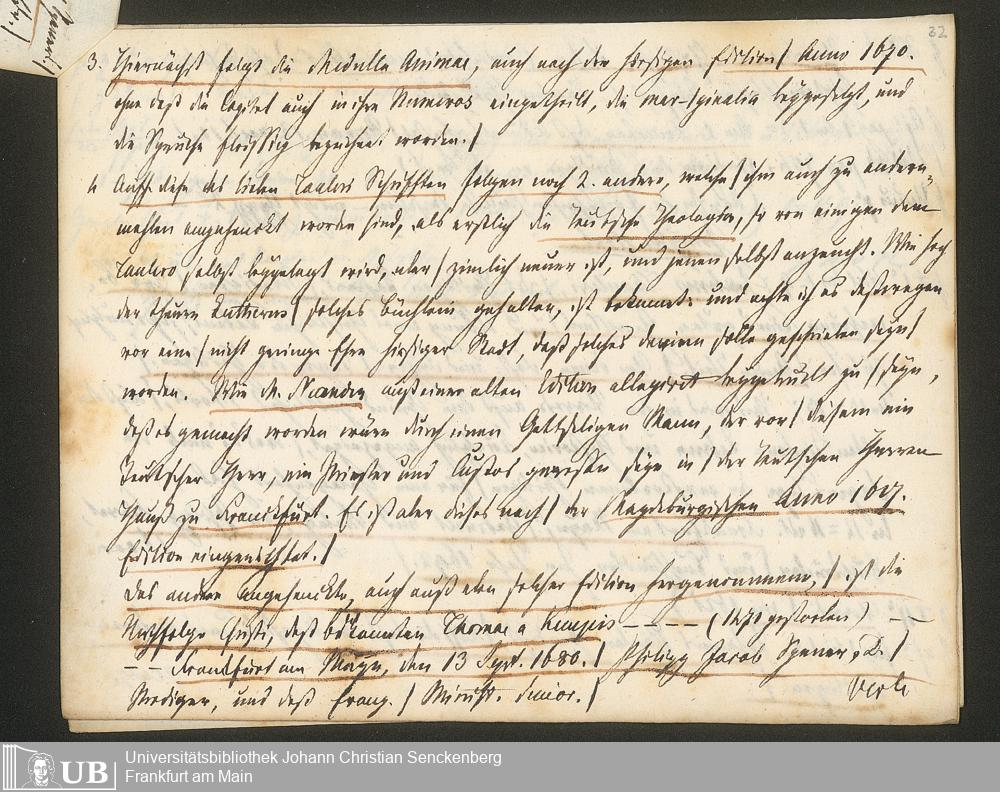 32
3. Hiernächst folgt die Medulla Animae, auch nach der hiesigen Edition/ Anno 1670.
ohne daß die Capitel auch in ihre Numeros eingetheilt, die mar-/ginalia beygesetzt, und
die Sprüche fleissig bezeichnet worden./
4 Auff diese des lieben Tauleri Schrifften folgen noch 2. andere, welche/ ihm auch zu andern-
mahlen angehenckt worden sind, als erstlich die Teutsche Theologia, so von einigen dem
Taulero selbst beygelegt wird, aber/ zimlich neuer ist, und jenen selbst anzeucht. Wie hoch
der theure Lutherus/ solches Büchlein gehalten, ist bekannt: und achte ich es deßwegen
vor eine/ nicht geringe Ehre hiesiger Stadt, daß solches darinn solle geschrieben seyn/
worden. Wie M. Neander auß einer alten Edition allegirt beygebracht zu/ seyn,
daß es gemacht worden wäre durch einen Gottseligen Mann, der vor/ diesem ein
Teutscher Herr, ein Priester und Custos gewesen seye in/ der Teutschen Herren
Hauß zu Franckfurt. Es ist aber dieses nach/ der Magdeburgischen Anno 1607.
Edition eingerichtet./
Das andere angehenckte, auch auß eben solcher Edition hergenommene,/ ist die
Nachfolge Christi, deß bekannten Thomae a Kempis - - - - (1471 gestorben) - -
- - Franckfurt am Mayn, den 13 Sept. 1680./ Philipp Jacob Spener, D./
Prediger, und deß Evang./ Minist. Senior./